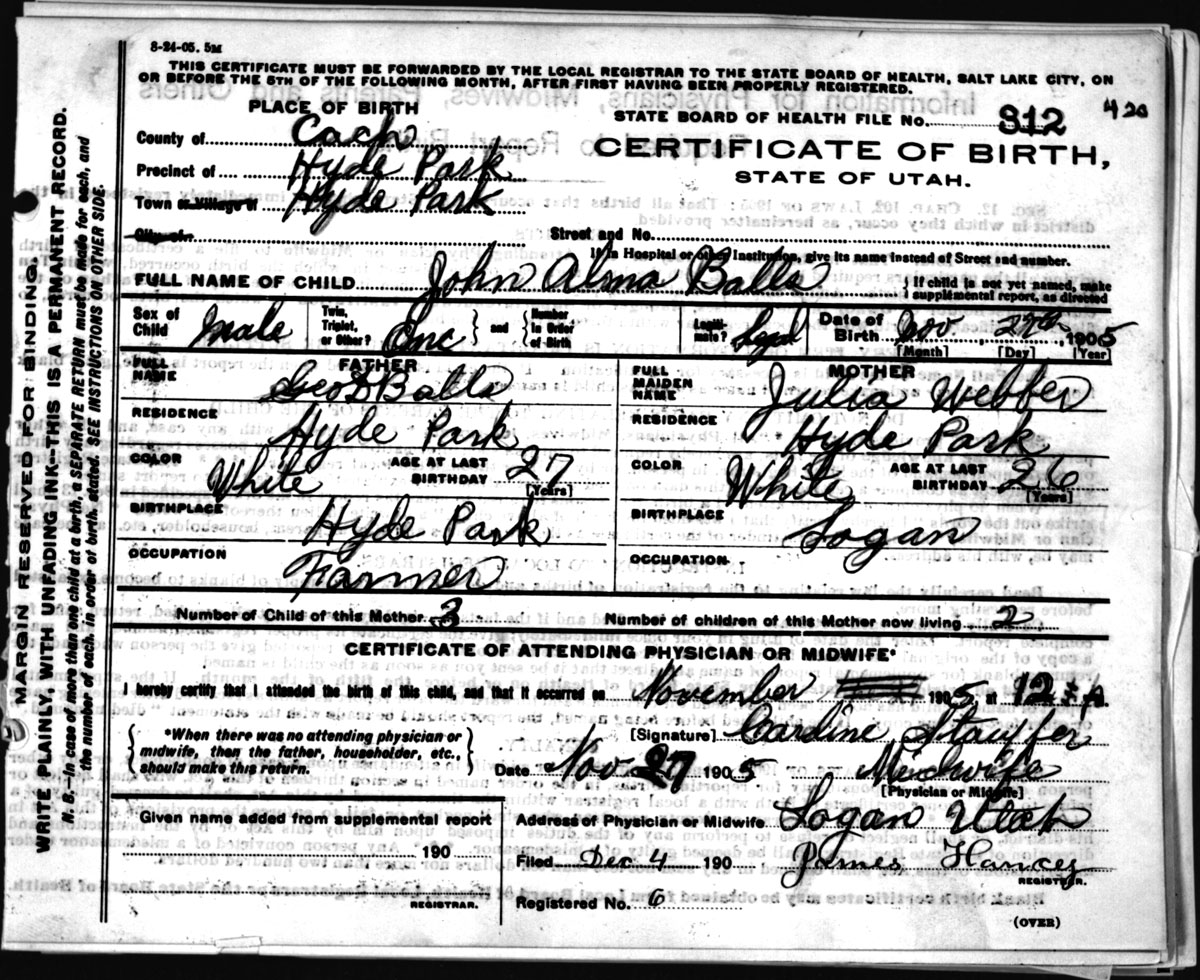 8-24-05. 5M
THIS CERTIFICATE MUST BE FORWARDED BY THE LOCAL REGISTRAR TO THE STATE BOARD OF HEALTH, SALT LAKE CITY, ON
OR BEFORE THE 5TH OF THE FOLLOWING MONTH, AFTER FIRST HAVING BEEN PROPERLY REGISTERED.
PLACE OF BIRTH
STATE BOARD OF HEALTH FILE NO. 812 420
County of Cach
CERTIFICATE OF BIRTH,
Precinct of Hyde Park
STATE OF UTAH.
Town or Village of Hyde Park
City of
Street and No.
If in Hospital or other Institution, give its name instead of Street and number.
FULL NAME OF CHILD John Alma Balls
{ If child is not yet named, make
supplemental report, as directed
Sex of Child Male
Twin, Triplet, or Other? One } and { Number in Order of Birth
Legitimate? Legal
Date of Birth Nov 27th, 1905
[Month] [Day] [Year]
FATHER
FULL NAME Geo D Balls
RESIDENCE Hyde Park
COLOR White AGE AT LAST BIRTHDAY 27 [Years]
BIRTHPLACE Hyde Park
OCCUPATION Farmer
MOTHER
FULL MAIDEN NAME Julia Webber
RESIDENCE Hyde Park
COLOR White AGE AT LAST BIRTHDAY 26 [Years]
BIRTHPLACE Logan
OCCUPATION
Number of Child of this Mother 3 Number of children of this Mother now living 2
CERTIFICATE OF ATTENDING PHYSICIAN OR MIDWIFE*
I hereby certify that I attended the birth of this child, and that it occurred on November 1905 at 12 A.
{ *When there was no attending physician or
midwife, then the father, householder, etc.,
should make this return. }
[Signature] Cardine Stauffer
Date Nov 27 1905 Midwife
[Physician or Midwife]
Given name added from supplemental report
190
REGISTRAR.
Address of Physician or Midwife Logan Utah
Filed Dec 4 190 James Hancey
REGISTRAR.
Registered No. 6
(OVER)
MARGIN RESERVED FOR BINDING.
WRITE PLAINLY, WITH UNFADING INK—THIS IS A PERMANENT RECORD.
N. B.—In case of more than one child at a birth, a SEPARATE RETURN must be made for each, and
the number of each, in order of birth, stated. SEE INSTRUCTIONS ON OTHER SIDE.